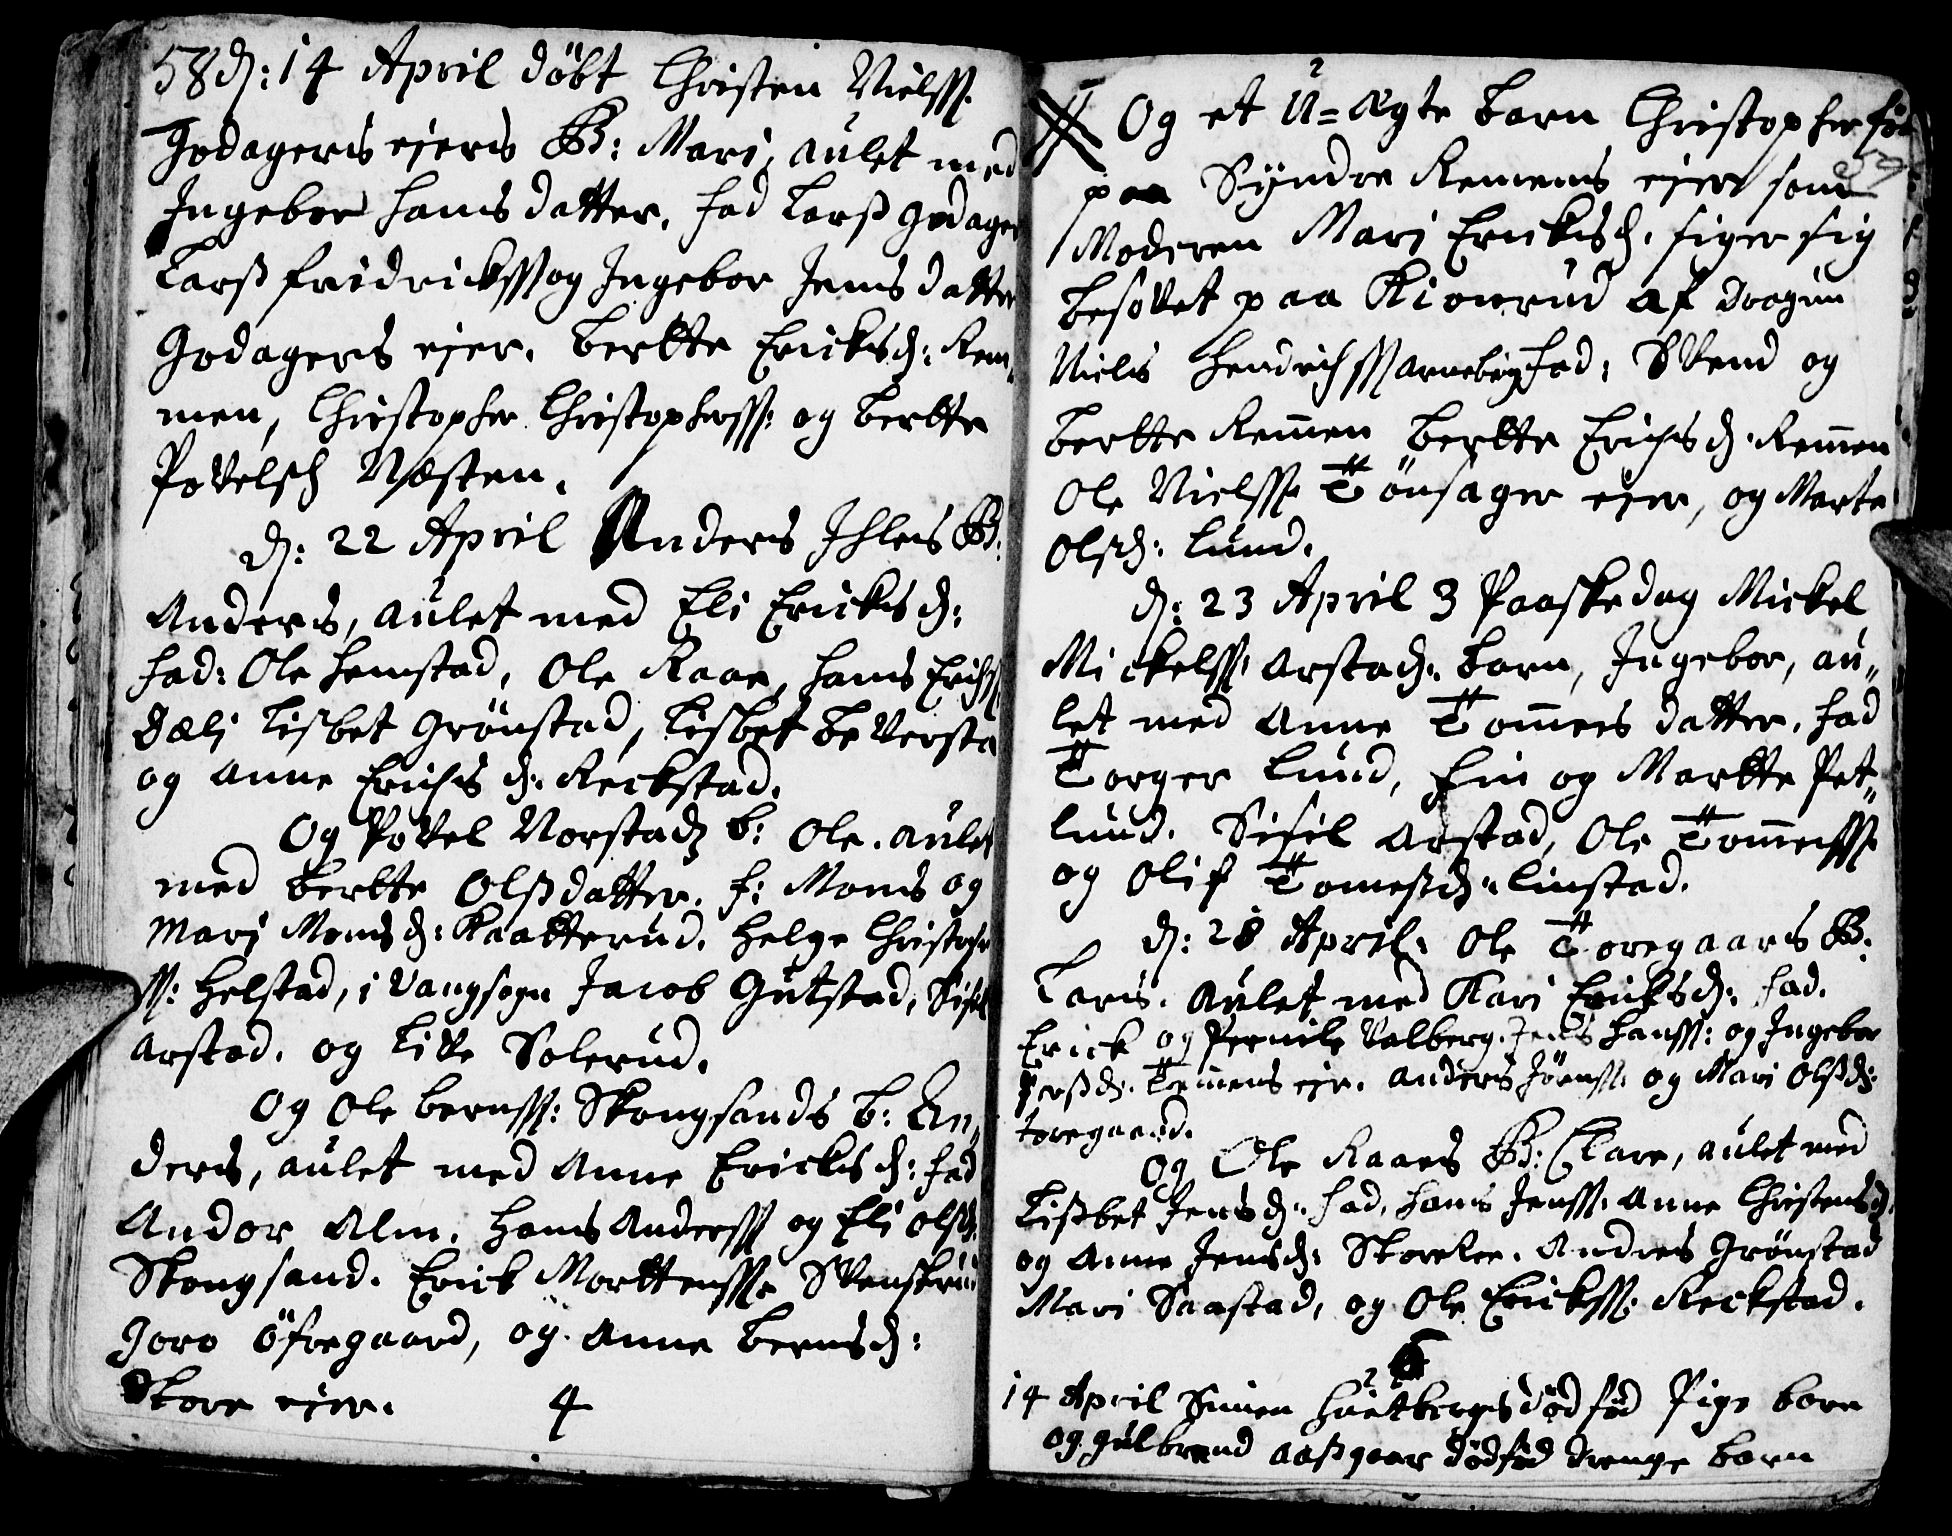 58 dh: 14 April döbt Christen Nielss.
Godagers ejers B: Mari, aulet med
Ingebor Hansdatter. fad Larß Godager
Larß fridrickss og Ingebor Jensdatter
Godagers ejer. Berthe Ericksd: Rem,
men, Christopher Christopherss: og Berthe
Povelsd Næsten.
d: 22 April Anders Ihles B:
Anders, aulet med Eli Ericksd:
fad: Ole Hemstad, Ole Raae, Hans Erichss
Dæli Lisbet Grönstad, Lisbet Beversta
og Anne Erichsd. Reckstad.
Og Povel Norstads b: Ole. aulet
med Berthe Olßdatter. f: Mons og
Mari Monsd: Kaatterud. Helge Christoph
ss: Helstad, i Vangsogn Jacob Gutstad, Sisel
Arstad. og Live Solerud.
Og Ole Bernss: Skougsands b: An,
ders, aulet med Anne Ericksd: fad
Andor Alm. Hans Anderss og Eli Olsd.
Skougsand. Erick Mortenss. Svenskrud
Joro Öfregaard, og Anne Bernsd:
Skore ejer. 4
Og et U=Ægte Barn Christopher föd
59
paa Syndre Remens ejer som
Moderen Mari Ericksd. siger sig
besovet paa Kionerud af dragun
Niels Hendrichss Arneberg fad: Svend og
Berthe Remen Berthe Erichsd. Remen
Ole Nielss. Tönsager ejer, og Marte
Olsd: Lund.
d: 23 April 3 Paaskedag Mickel
Mickelss: Arstads. Barn, Ingebor, au,,
let med Anne Tommesdatter. fad
Torger Lund, Fin og Marthe Pet,,
lund. Sisil Arstad, Ole Tommesss
og Olif Tomesd. Linstad.
d: 28 April. Ole Toregaards B:
Lars. aulet med Kari Ericksd: fad.
Erick og Pernile Valberg. Jens Hanss: og Ingebor
Perßd. Temmens ejr. Anders Jörnss. og Mari Olßd:
Toregaard.
Og Ole Raaes B: Clare, aulet med
Lißbet Jensd. fad. Hans Jenss. Anne Christensd.
og Anne Jensd: Skoreker. Andres Grönstad
Mari Saastad, og Ole Erickss: Reckstad.
6
14 April Simen Huetbergs död föd Pige barn
og Gulbrand Aaßgaar dödföd drenge barn